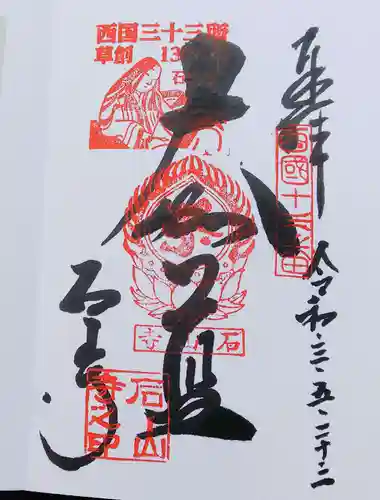 奉拝
西國十三番
令和・三・五・二十二
西国三十三所
草創 13
石
大伽藍
石山寺
石山寺
石山寺之印